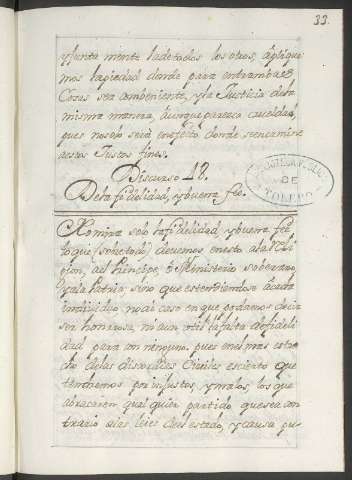 33.
y Junta mente la de todos los otros, apliquemos la piedad donde para entrambas
Cosas sea combeniente, y la Justicia dela
misma manera, aunque paresca crueldad,
pues no solo será en efeto donde se encamine
a estos Justos fines.
Discurso 18.
De la fidelidad, y buena fee.
BIBLIOTECA PUBLIC
DE
TOLEDO
No mira solo la fidelidad, y buena fee
lo que (sobre todo) devemos en esto a la Reli
gion, al Principe, o Ministerio soberano,
y a la Patria sino que estendiendose a cada
individuo, no ai caso en que podamos decir
ser honrosa, ni aun util la falta de fideli
dad para con ninguno pues en el mas estre
cho de las discordias Civiles es cierto que
tendremos por injustos, y malos, los que
abracaren qual quier partido que sea con
trario a las leies del estado, y causa pu-